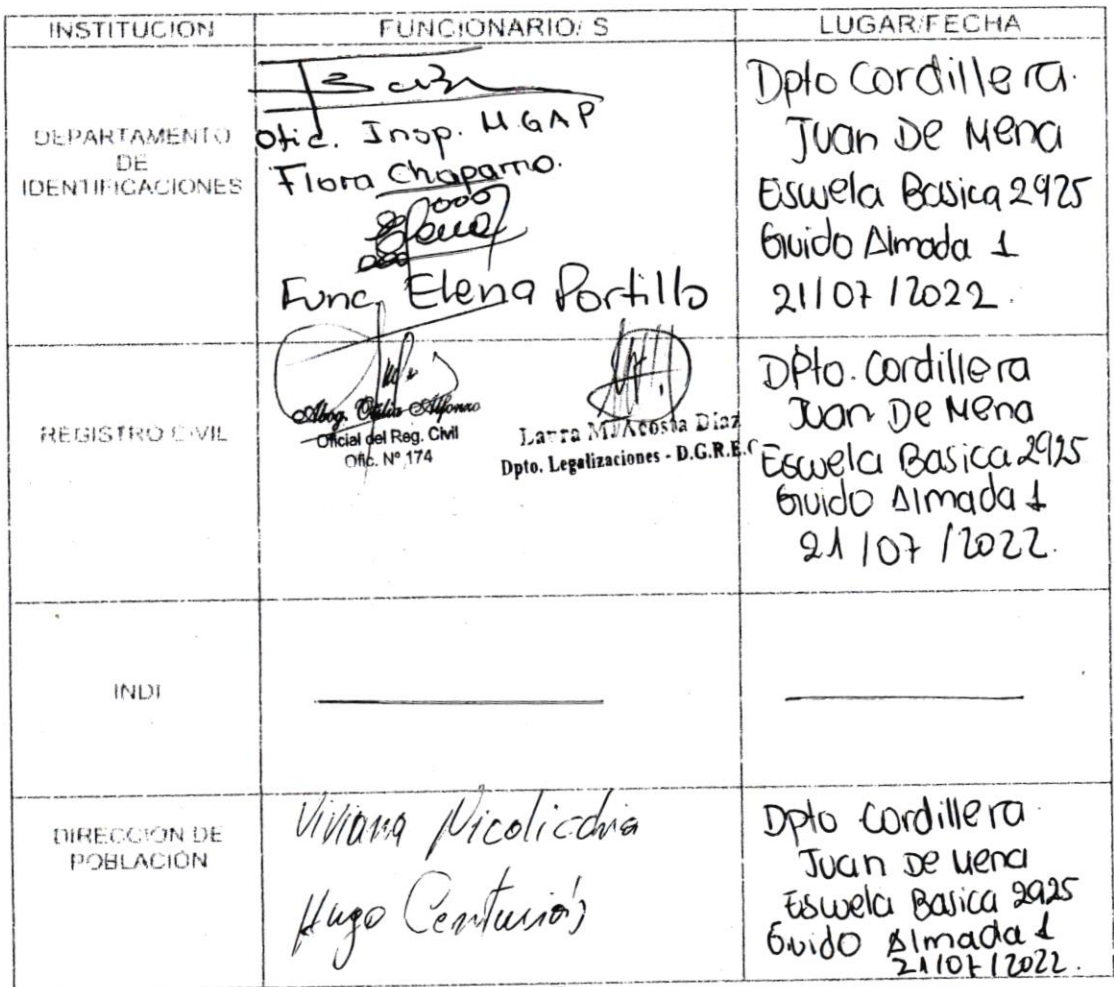 INSTITUCION
FUNCIONARIO/ S
LUGAR/FECHA
DEPARTAMENTO
DE
IDENTIFICACIONES
Ofic. Insp. M.GAP
Flora Chaparro.
Func. Elena Portillo
Dpto Cordillera.
Juan De Mena
Escuela Basica 2925
Guido Almada 1
21/07/2022.
REGISTRO CIVIL
Abog. Otilia Alfonzo
Oficial del Reg. Civil
Ofic. Nº 174
Laura M. Acosta Diaz
Dpto. Legalizaciones - D.G.R.E.C
Dpto. Cordillera
Juan De Mena
Escuela Basica 2925
Guido Almada 1
21/07/2022.
INDI
DIRECCIÓN DE
POBLACIÓN
Viviana Nicolicchia
Hugo Centurión
Dpto Cordillera
Juan De Mena
Escuela Basica 2925
Guido Almada 1
21/07/2022.